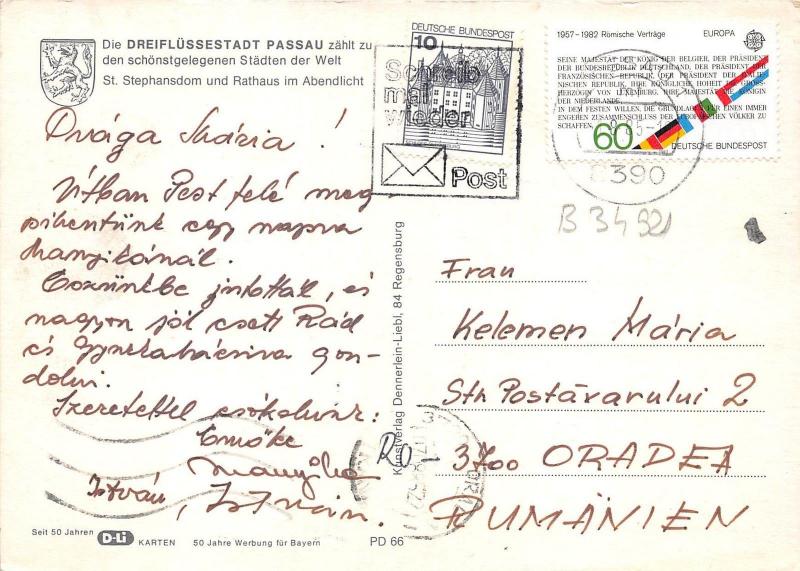 Die DREIFLÜSSESTADT PASSAU zählt zu
den schönstgelegenen Städten der Welt
St. Stephansdom und Rathaus im Abendlicht
DEUTSCHE BUNDESPOST
10
Schreib
mal
wieder
Post
1957-1982 Römische Verträge EUROPA
SEINE MAJESTÄT DER KÖNIG DER BELGIER, DER PRÄSIDENT
DER BUNDESREPUBLIK DEUTSCHLAND, DER PRÄSIDENT DER
FRANZÖSISCHEN REPUBLIK, DER PRÄSIDENT DER ITALIE-
NISCHEN REPUBLIK, IHRE KÖNIGLICHE HOHEIT DIE GROSS-
HERZOGIN VON LUXEMBURG, IHRE MAJESTÄT DIE KÖNIGIN
DER NIEDERLANDE,
IN DEM FESTEN WILLEN, DIE GRUNDLAGEN FÜR EINEN IMMER
ENGEREN ZUSAMMENSCHLUSS DER EUROPÄISCHEN VÖLKER ZU
SCHAFFEN
60
DEUTSCHE BUNDESPOST
8390
B 3492
Drága Mária !
Útban Pest felé meg
pihentünk egy napra
Manyikánál.
Eszünkbe jutottál, és
nagyon jól esett Rád
és Gyurkabácsira gon-
dolni.
Szeretettel csókolunk:
Emőke
Manyika
István, István.
RO
Kunstverlag Dennerlein-Liebl, 84 Regensburg
Frau
Kelemen Mária
Str Postăvarului 2
3700 ORADEA
RUMÄNIEN
Seit 50 Jahren D-Li KARTEN 50 Jahre Werbung für Bayern PD 66